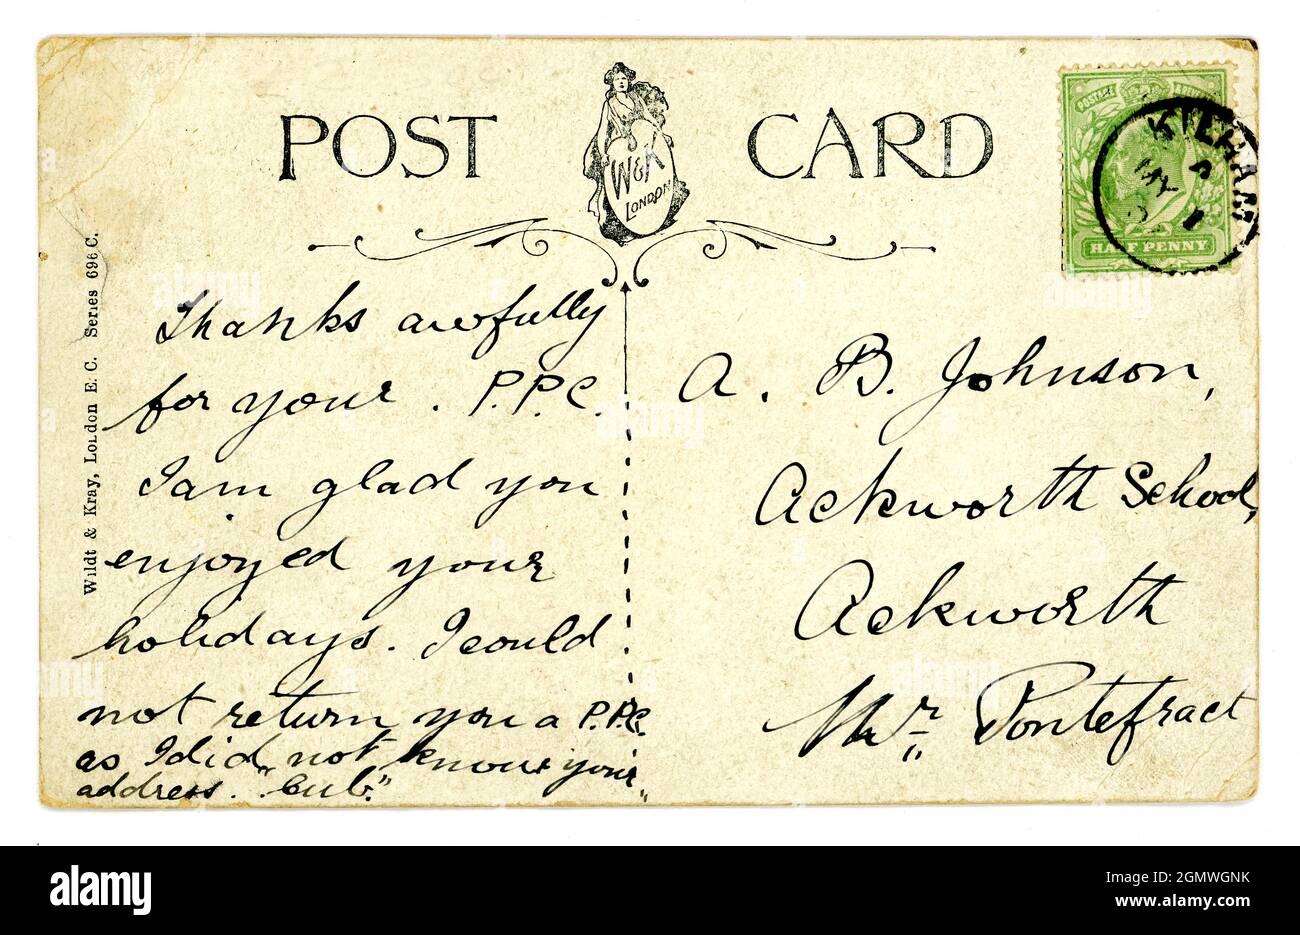 POST CARD
W&K
LONDON
POSTAGE
HALF PENNY
KILHAM
A
MY 1
Wildt & Kray, London E.C. Series 696 C.
Thanks awfully
for your . P.P.C.
I am glad you
enjoyed your
holidays. I could
not return you a P.P.C.
as I did not know your
address. "Cub."
A. B. Johnson,
Ackworth School,
Ackworth
Nr. Pontefract
alamy
Image ID: 2GMWGNK
www.alamy.com